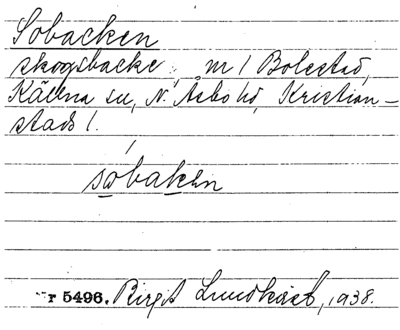 Sobacken
skogsbacke, nr 1 Bolestad,
Källna sn, N. Åsbo hd, Kristian-
stads l.
sobaken
r 5496. Birgit Lundkvist, 1938.